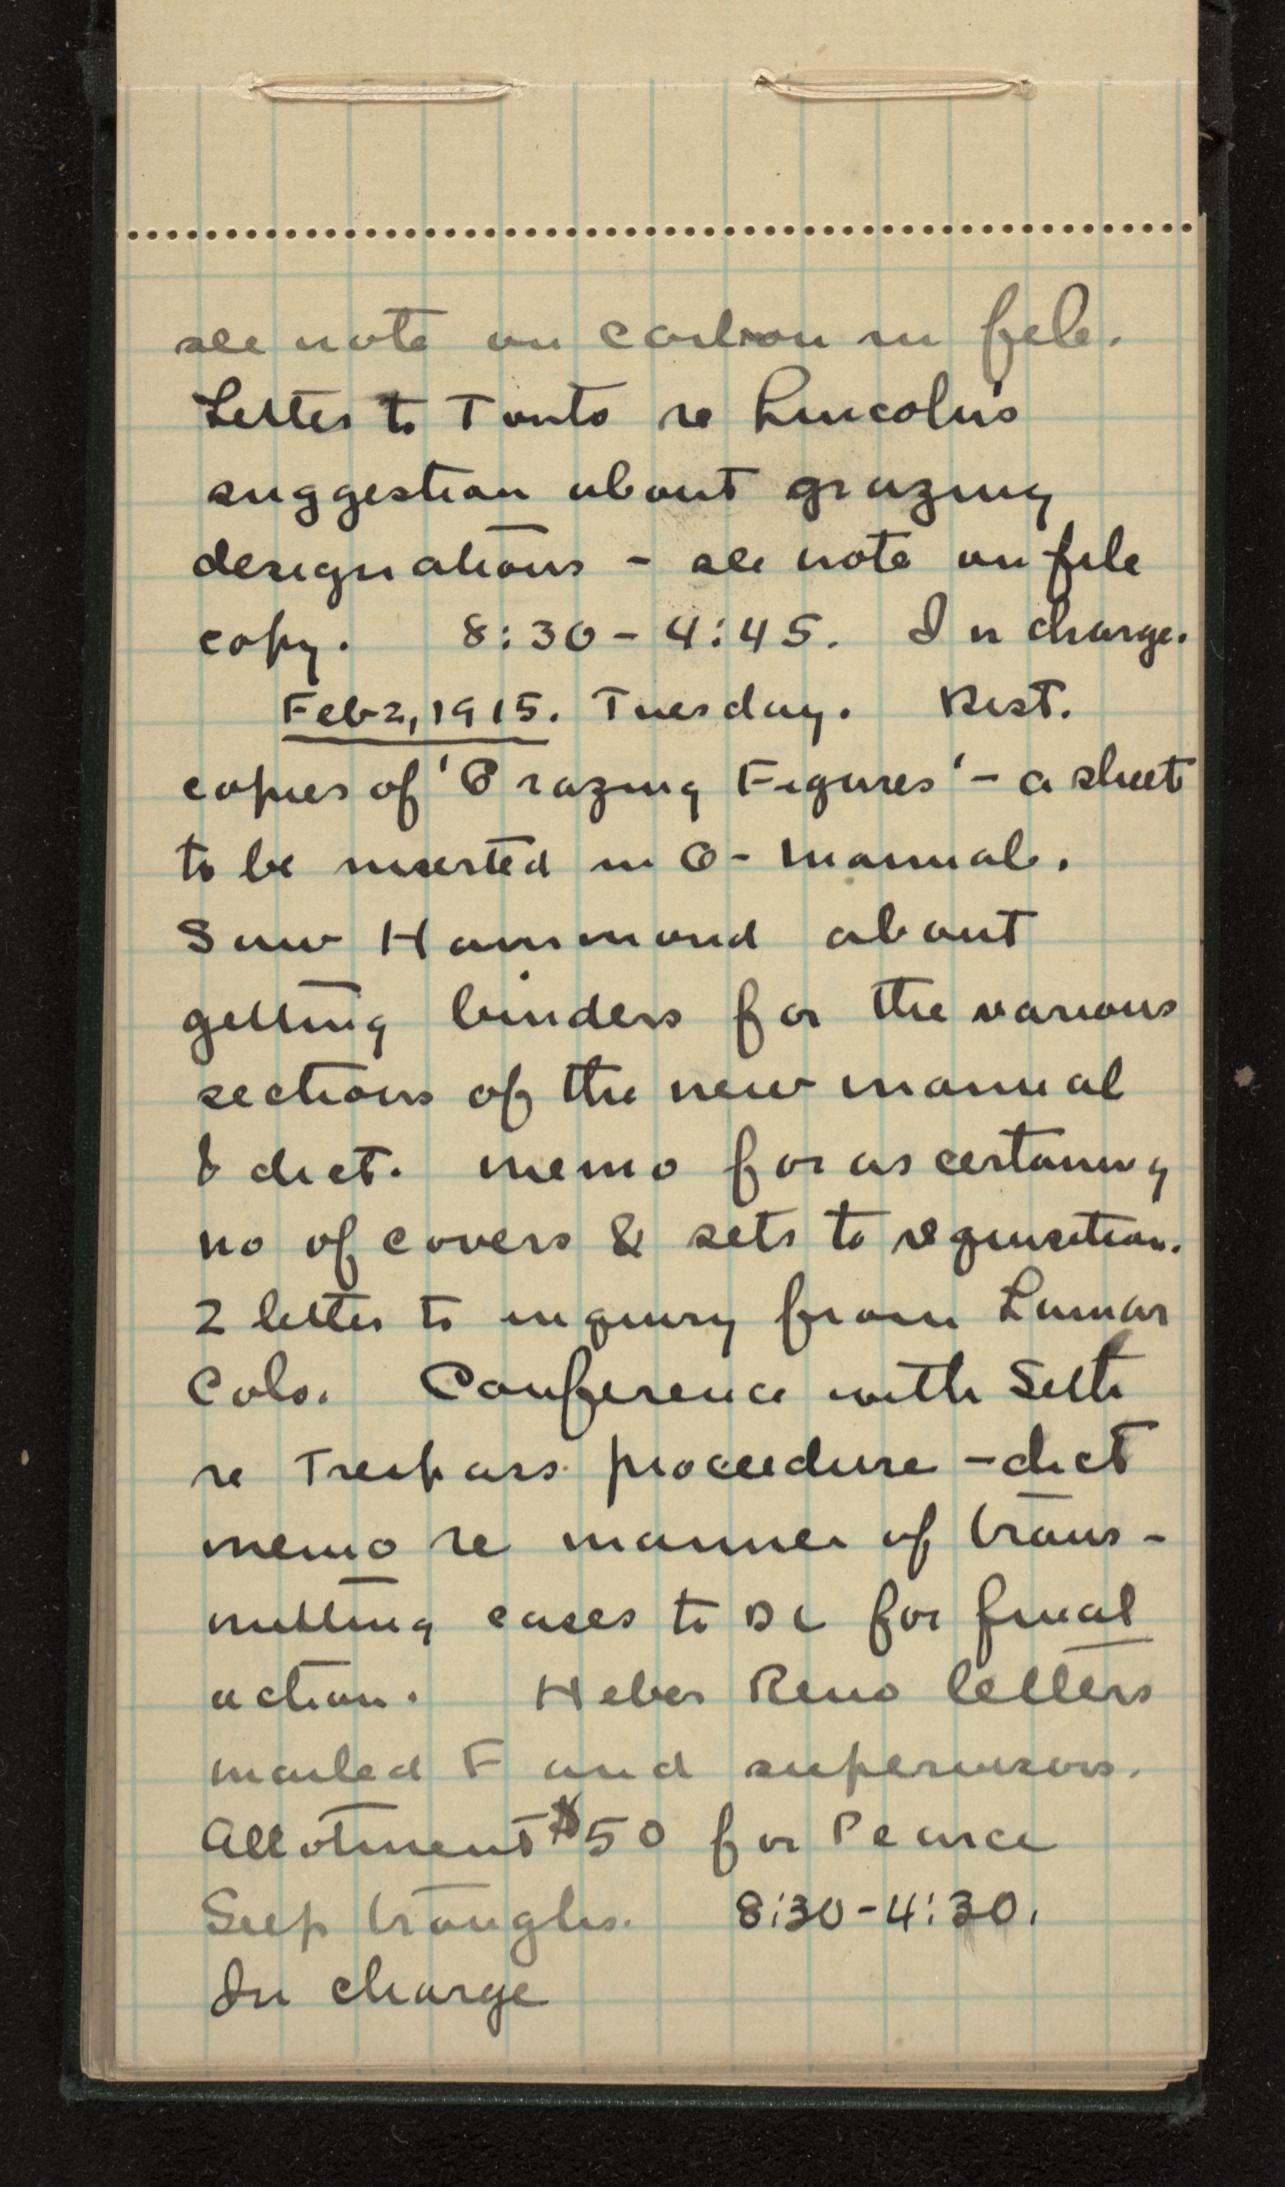 see note on carbon in file.
Letter to Tonto re Lincoln's
suggestion about grazing
designations - see note on file
copy. 8:30 - 4:45. In charge.
Feb 2, 1915. Tuesday. Dist.
copies of 'Grazing Figures' - a sheet
to be inserted in G- Manual.
Saw Hammond about
getting binders for the various
sections of the new manual
& dict. memo for ascertaining
no of covers & sets to requisition.
2 letter to inquiry from Lamar
Colo. Conference with Seth
re Trespass proceedure - dict
memo re manner of trans-
mitting cases to DC for final
action. Heber Reno letters
mailed F and supervisors.
Allotment $50 for Pearce
Seep troughs. 8:30-4:30.
In charge